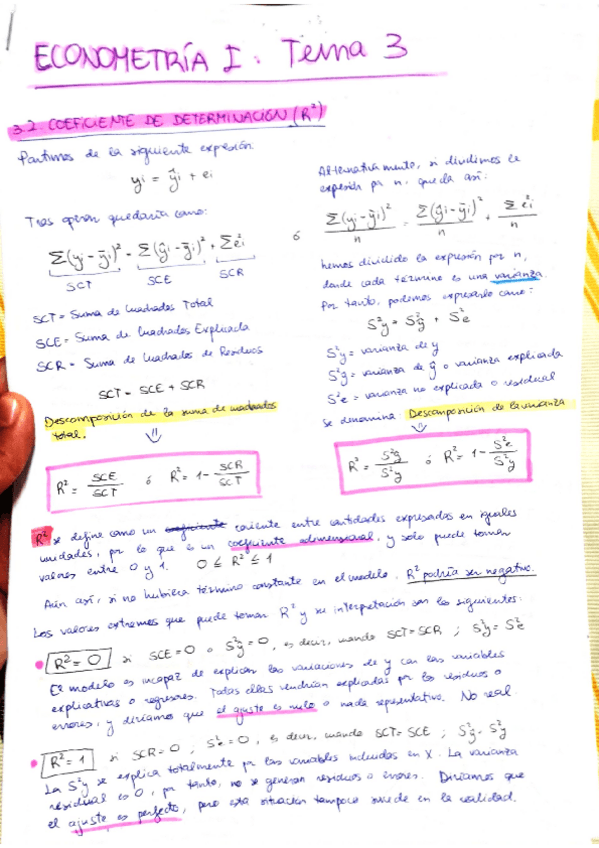 ECONOMETRÍA I: Tema 3
3.2. COEFICIENTE DE DETERMINACIÓN (R²)
Partimos de la siguiente expresión:
yi = ŷi + ei
Tras operar quedaría como:
Σ(yi - ȳi)² = Σ(ŷi - ȳi)² + Σei²
SCT SCE SCR
SCT = Suma de Cuadrados Total
SCE = Suma de Cuadrados Explicada
SCR = Suma de Cuadrados de Residuos
SCT = SCE + SCR
Descomposición de la suma de cuadrados
total.
⇓
R² = SCE/SCT ó R² = 1 - SCR/SCT
ó
Alternativamente, si dividimos la
expresión por n, queda así:
Σ(yi - ȳi)²/n = Σ(ŷi - ȳi)²/n + Σei²/n
hemos dividido la expresión por n,
donde cada término es una varianza.
Por tanto, podemos expresarlo como:
S²y = S²ŷ + S²e
S²y = varianza de y
S²ŷ = varianza de ŷ o varianza explicada
S²e = varianza no explicada o residual
se denomina Descomposición de la varianza
⇓
R² = S²ŷ/S²y ó R² = 1 - S²e/S²y
R² se define como un cociente entre cantidades expresadas en iguales
unidades, por lo que es un coeficiente adimensional, y solo puede tomar
valores entre 0 y 1. 0 ≤ R² ≤ 1
Aún así, si no hubiera término constante en el modelo, R² podría ser negativo.
Los valores extremos que puede tomar R² y su interpretación son los siguientes:
• R² = 0 si SCE = 0 o S²ŷ = 0, es decir, cuando SCT = SCR ; S²y = S²e
El modelo es incapaz de explicar las variaciones de y con las variables
explicativas o regresores. Todas ellas vendrían explicadas por los residuos o
errores, y diríamos que el ajuste es nulo o nada representativo. No real.
• R² = 1 si SCR = 0, S²e = 0, es decir, cuando SCT = SCE ; S²ŷ = S²y
La S²y se explica totalmente por las variables incluidas en X. La varianza
residual es 0, por tanto, no se generan residuos o errores. Diríamos que
el ajuste es perfecto, pero esta situación tampoco sucede en la realidad.